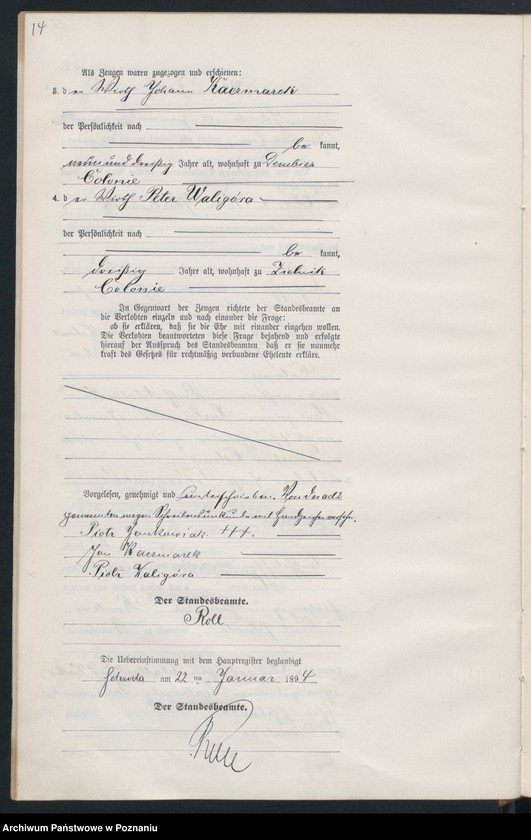 14
Als Zeugen waren zugezogen und erschienen:
3. der Wirth Johann Kaczmarek
der Persönlichkeit nach
be kannt,
neunund dreißig Jahre alt, wohnhaft zu Dembicz
Colonie
4. der Wirth Peter Waligóra
der Persönlichkeit nach
be kannt,
dreißig Jahre alt, wohnhaft zu Zielnik
Colonie
In Gegenwart der Zeugen richtete der Standesbeamte an
die Verlobten einzeln und nach einander die Frage:
ob sie erklären, daß sie die Ehe mit einander eingehen wollen.
Die Verlobten beantworteten diese Frage bejahend und erfolgte
hierauf der Ausspruch des Standesbeamten, daß er sie nunmehr
kraft des Gesetzes für rechtmäßig verbundene Eheleute erkläre.
Vorgelesen, genehmigt und unterschrieben. Von der
genannten wegen Schreibensunkunde mit Handzeichen versehen.
Piotr Jankowiak. +++.
Jan Kaczmarek
Piotr Waligóra
Der Standesbeamte.
Roll
Die Uebereinstimmung mit dem Hauptregister beglaubigt
am 22 ten Januar 1894
Der Standesbeamte.
Roll
Archiwum Państwowe w Poznaniu